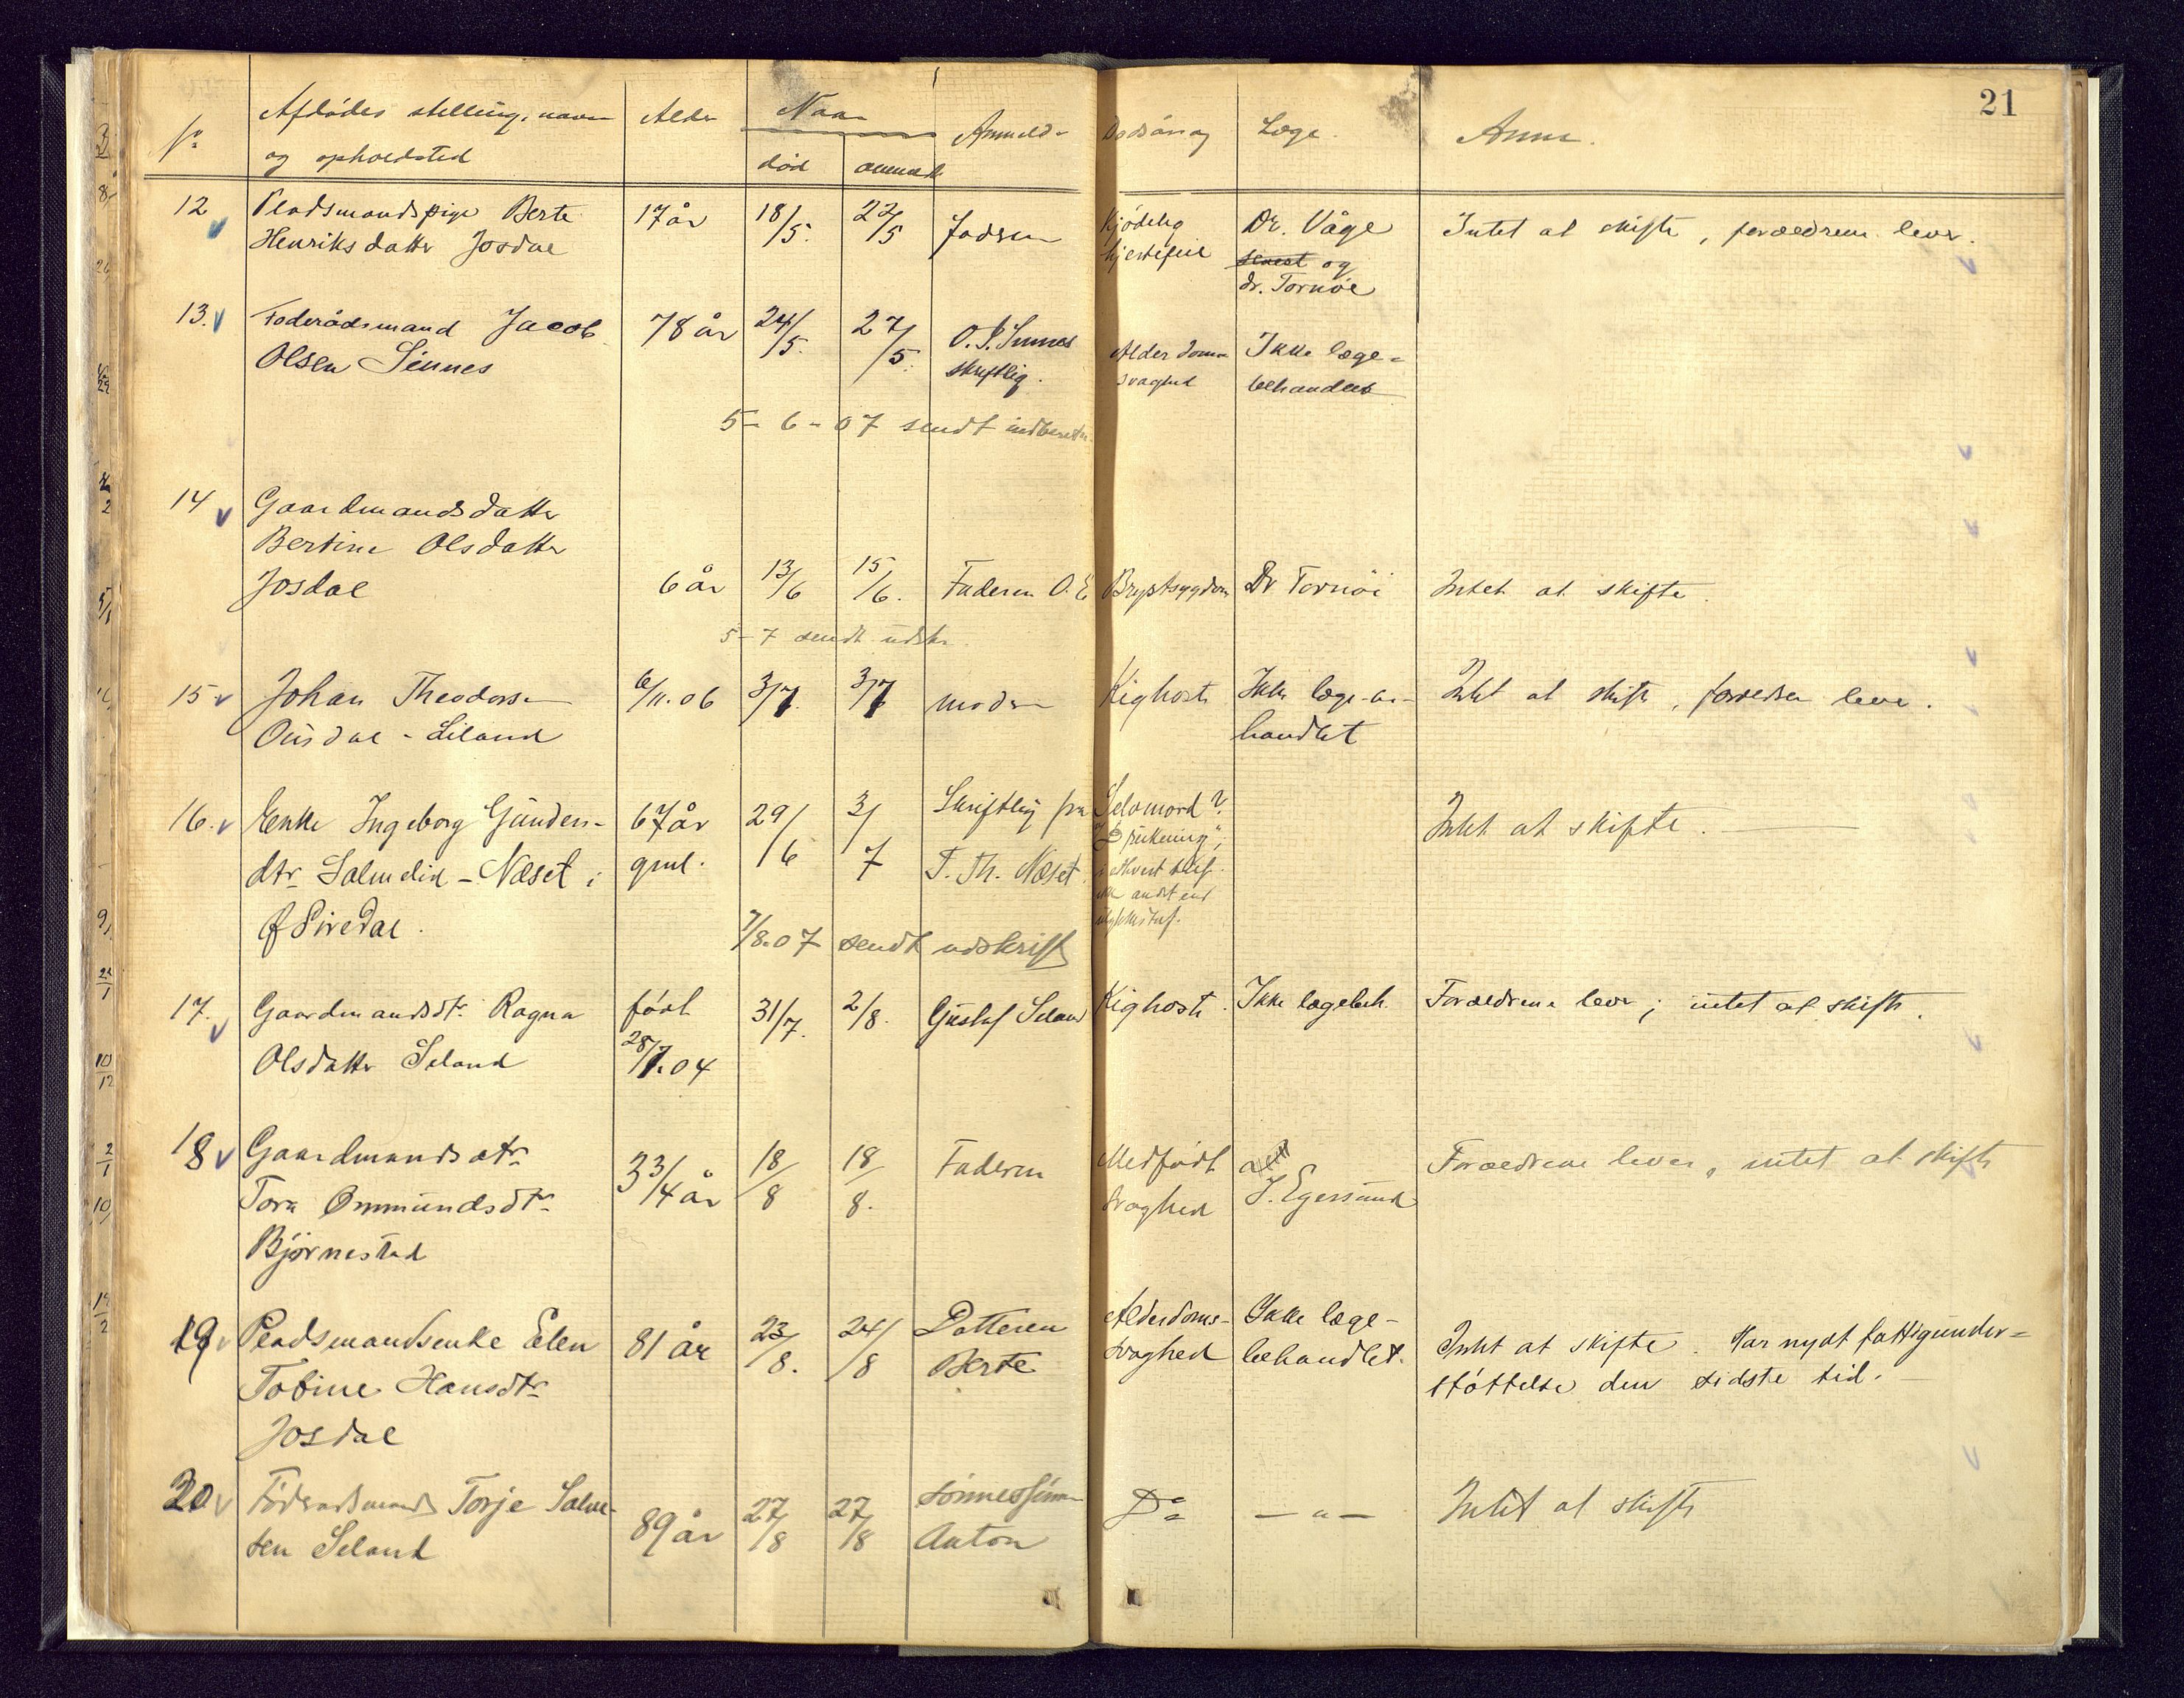 21
No Afdødes stilling, navn Alder Naar Anmelder Dødsårsag Læge. Anm.
og opholdsted død anmeldt
12 Pladsmandspige Berte 17 år 18/5. 22/5 Fadren Kjødelig Dr. Våge Intet at skifte, forældrene lever.
Henriksdatter Josdal hjertefeil senest og
dr. Tornøe
13. Foderådsmand Jacob 78 år 24/5. 27/5. O. J. Sinnes Alderdoms Ikke læge-
Olsen Sinnes skriftlig. svaghed behandlet
5-6-07 sendt indberetn.
14 Gaardmandsdatter
Bertine Olsdatter
Josdal 6 år 13/6 15/6. Faderen O. E Brystsygdom Dr Tornøi Intet at skifte.
5-7 sendt udskr.
15 Johan Theodorsen 6/11.06 3/7. 3/7 moder Kighoste Ikke læge-be- Intet at skifte, forældre lever.
Ousdal - Liland handlet
16. Enke Ingeborg Gunders- 67 år 29/6 3/7 Skriftlig fra Selvmord? Intet at skifte.
dtr Salmelid - Næset i gml. T. Th. Næset "Drukning";
Ø Siredal. i ethvert tilf.
ikke andet end
ulykkestilf.
7/8.07 sendt udskrift
17. Gaardmandsdtr. Ragna født 31/7. 2/8. Gustaf Seland Kighoste. Ikke lægebeh. Forældrene lever; intet at skifte.
Olsdatter Seland 28/7.04
18 Gaardmandsdtr 3 3/4 år 18/8 18/8. Faderen Medfødt J. Egersund Forældrene lever, intet at skifte
Tora Ommundsdtr svaghed
Bjørnestad
19 Pladsmandsenke Elen 81 år 23/8. 24/8 Datteren Alderdoms- Ikke læge- Intet at skifte. Har nydt fattigunder-
Tobine Hansdtr Berte svaghed behandlet. støttelse den sidste tid.
Josdal
20 Føderadsmand Torje Salve- 89 år 27/8 27/8 sønnesønn Do — " — Intet at skifte
sen Seland Anton